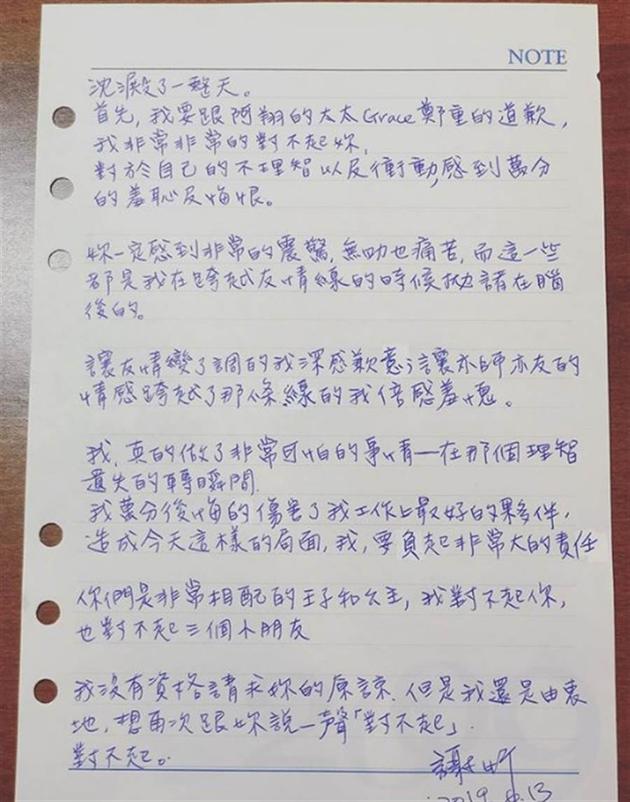 NOTE
沈澱了一整天。
首先,我要跟阿翔的太太Grace鄭重的道歉,
我非常非常的對不起妳,
對於自己的不理智以及衝動,感到萬分
的羞恥及悔恨。
妳一定感到非常的震驚,無助也痛苦,而這一些
都是我在跨越友情線的時候拋諸在腦
後的。
讓友情變了調的我深感歉意;讓亦師亦友的
情感跨越了那條線的我倍感羞愧。
我,真的做了非常可怕的事情—在那個理智
遺失的轉瞬間.
我萬分後悔的傷害了我工作上最好的夥伴,
造成今天這樣的局面,我,要負起非常大的責任
你們是非常相配的王子和公主,我對不起你,
也對不起三個小朋友
我沒有資格請求妳的原諒.但是我還是由衷
地,想再次跟妳說一聲「對不起」.
對不起。
謝忻
2019.6.13